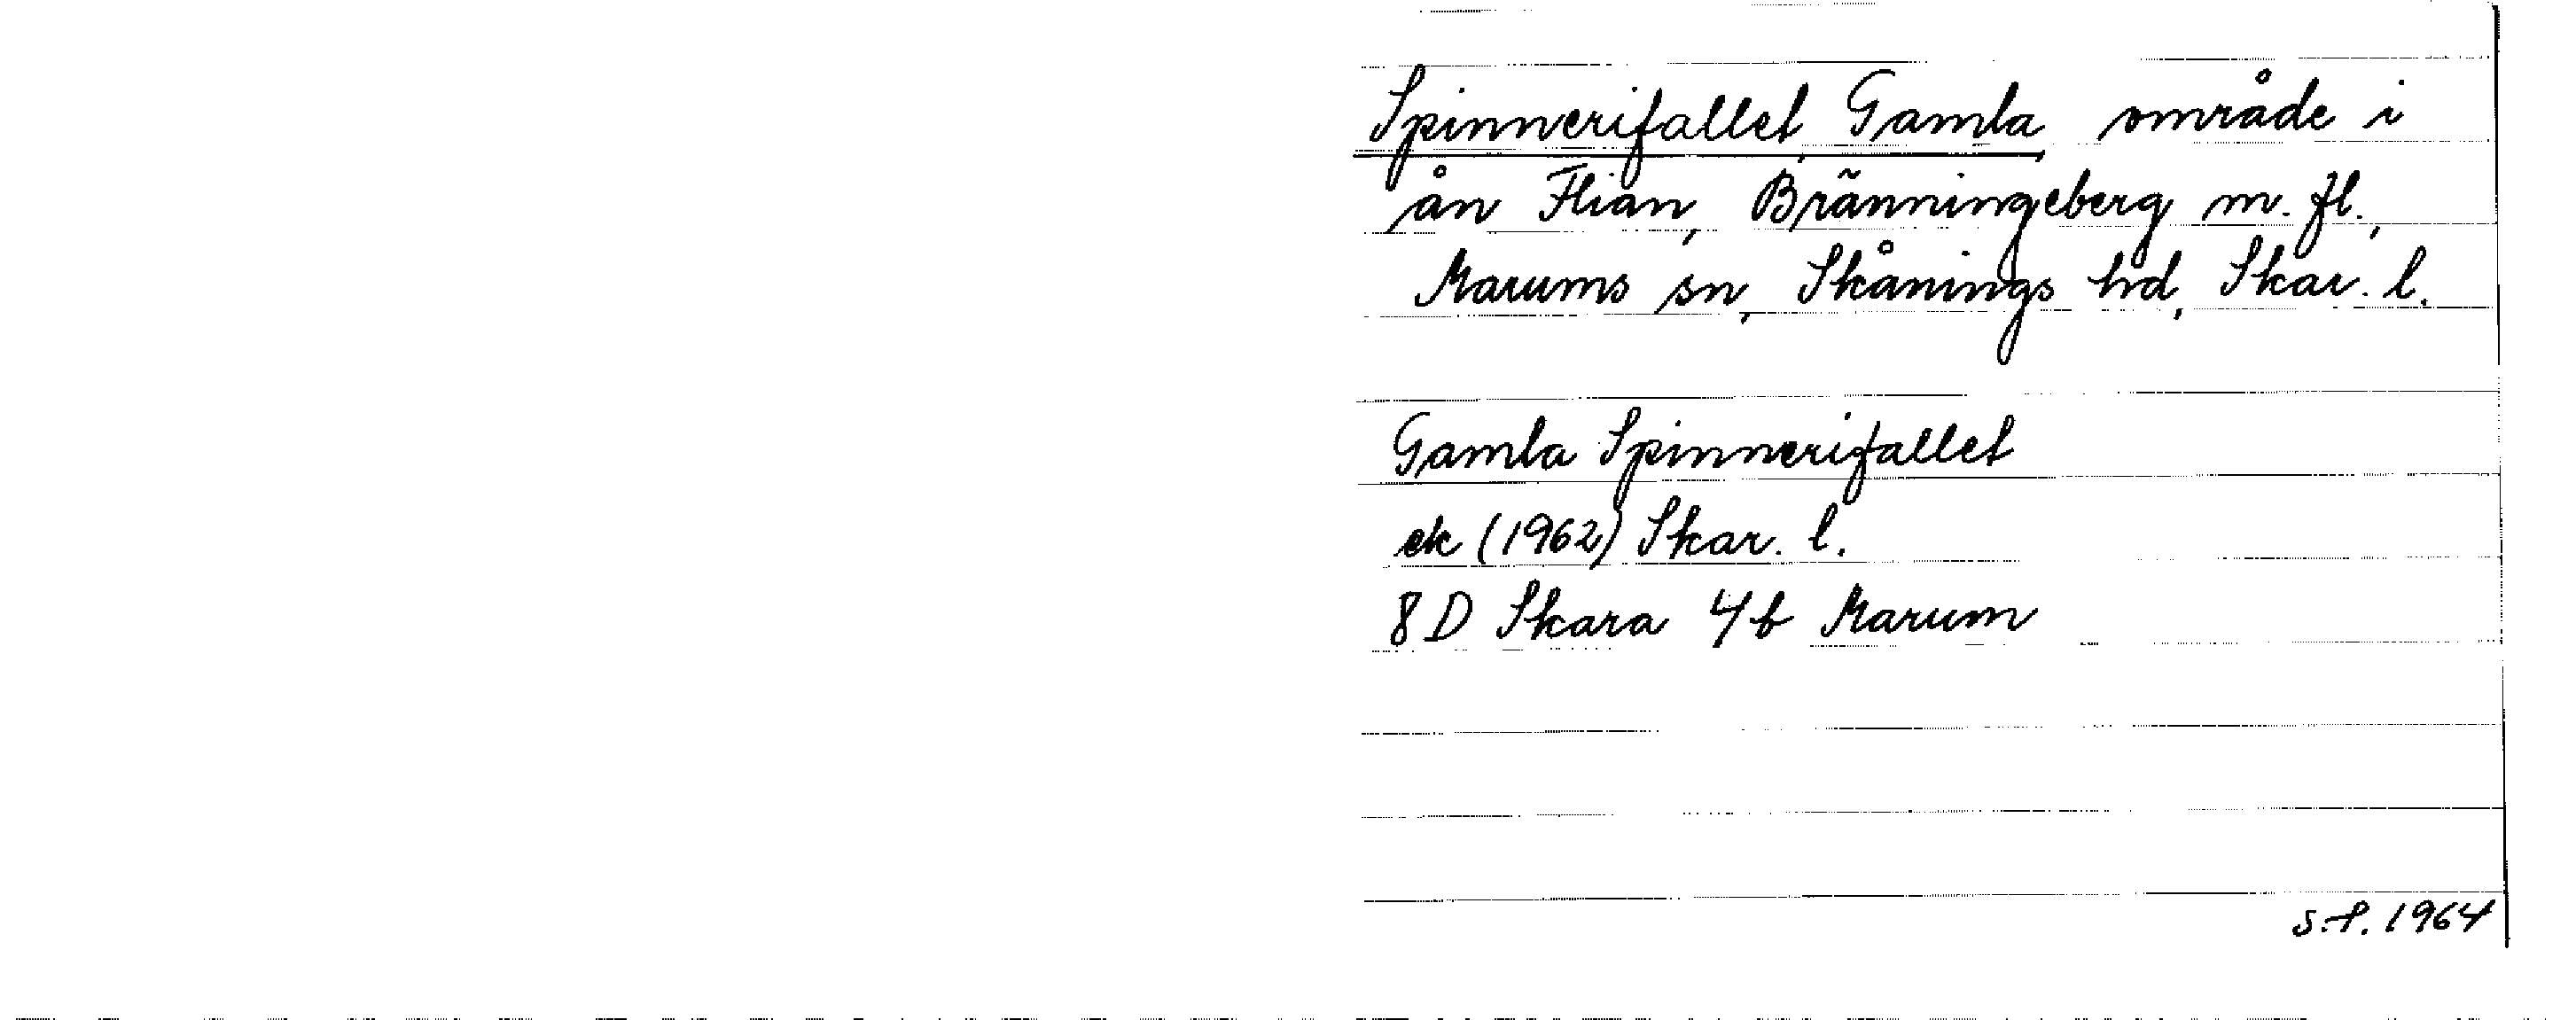 Spinnerifallet, Gamla, område i
ån Flian, Bränningeberg m. fl.,
Marums sn, Skånings hd, Skar. l.
Gamla Spinnerifallet
ek (1962) Skar. l.
8 D Skara 4 b Marum
S.P. 1964